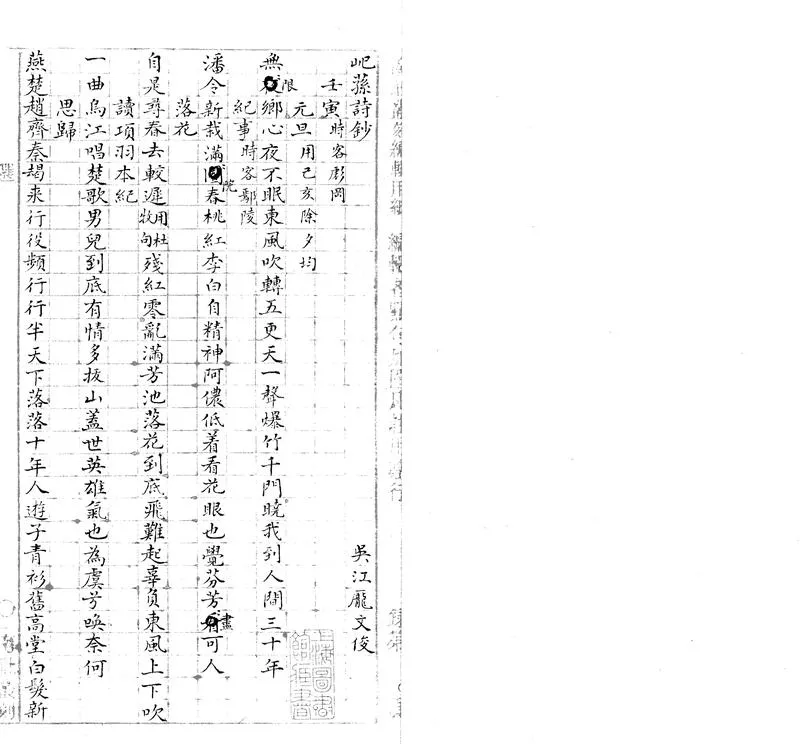 屺蓀詩鈔
吳江龐文俊
壬寅時客彭岡
元旦用己亥除夕均
無限鄉心夜不眠東風吹轉五更天一聲爆竹千門曉我到人間三十年
紀事時客鄢陵
潘令新栽滿院春桃紅李白自精神阿儂低着看花眼也覺芬芳盡可人
落花
自是尋春去較遲用杜牧句殘紅零亂滿芳池落花到底飛難起辜負東風上下吹
讀項羽本紀
一曲烏江唱楚歌男兒到底有情多拔山蓋世英雄氣也為虞兮喚奈何
思歸
燕楚趙齊秦朅來行役頻行行半天下落落十年人遊子青衫舊高堂白髮新